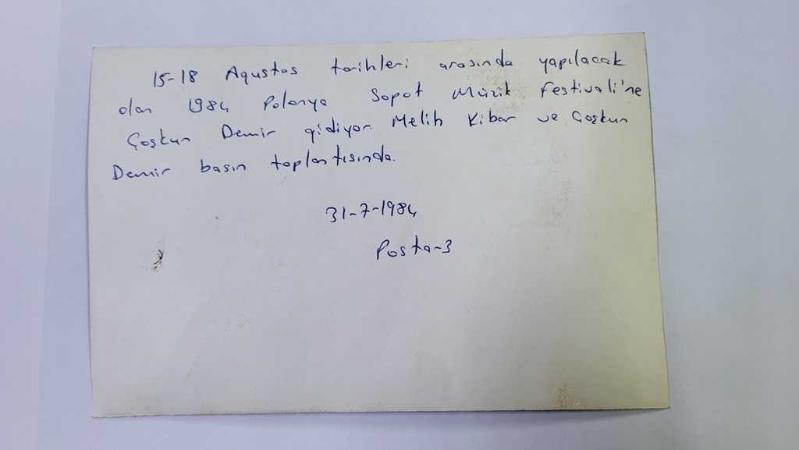 15-18 Ağustos tarihleri arasında yapılacak
olan 1984 Polonya Sopot Müzik Festivali'ne
Coşkun Demir gidiyor Melih Kibar ve Coşkun
Demir basın toplantısında.
31-7-1984
Posta-3